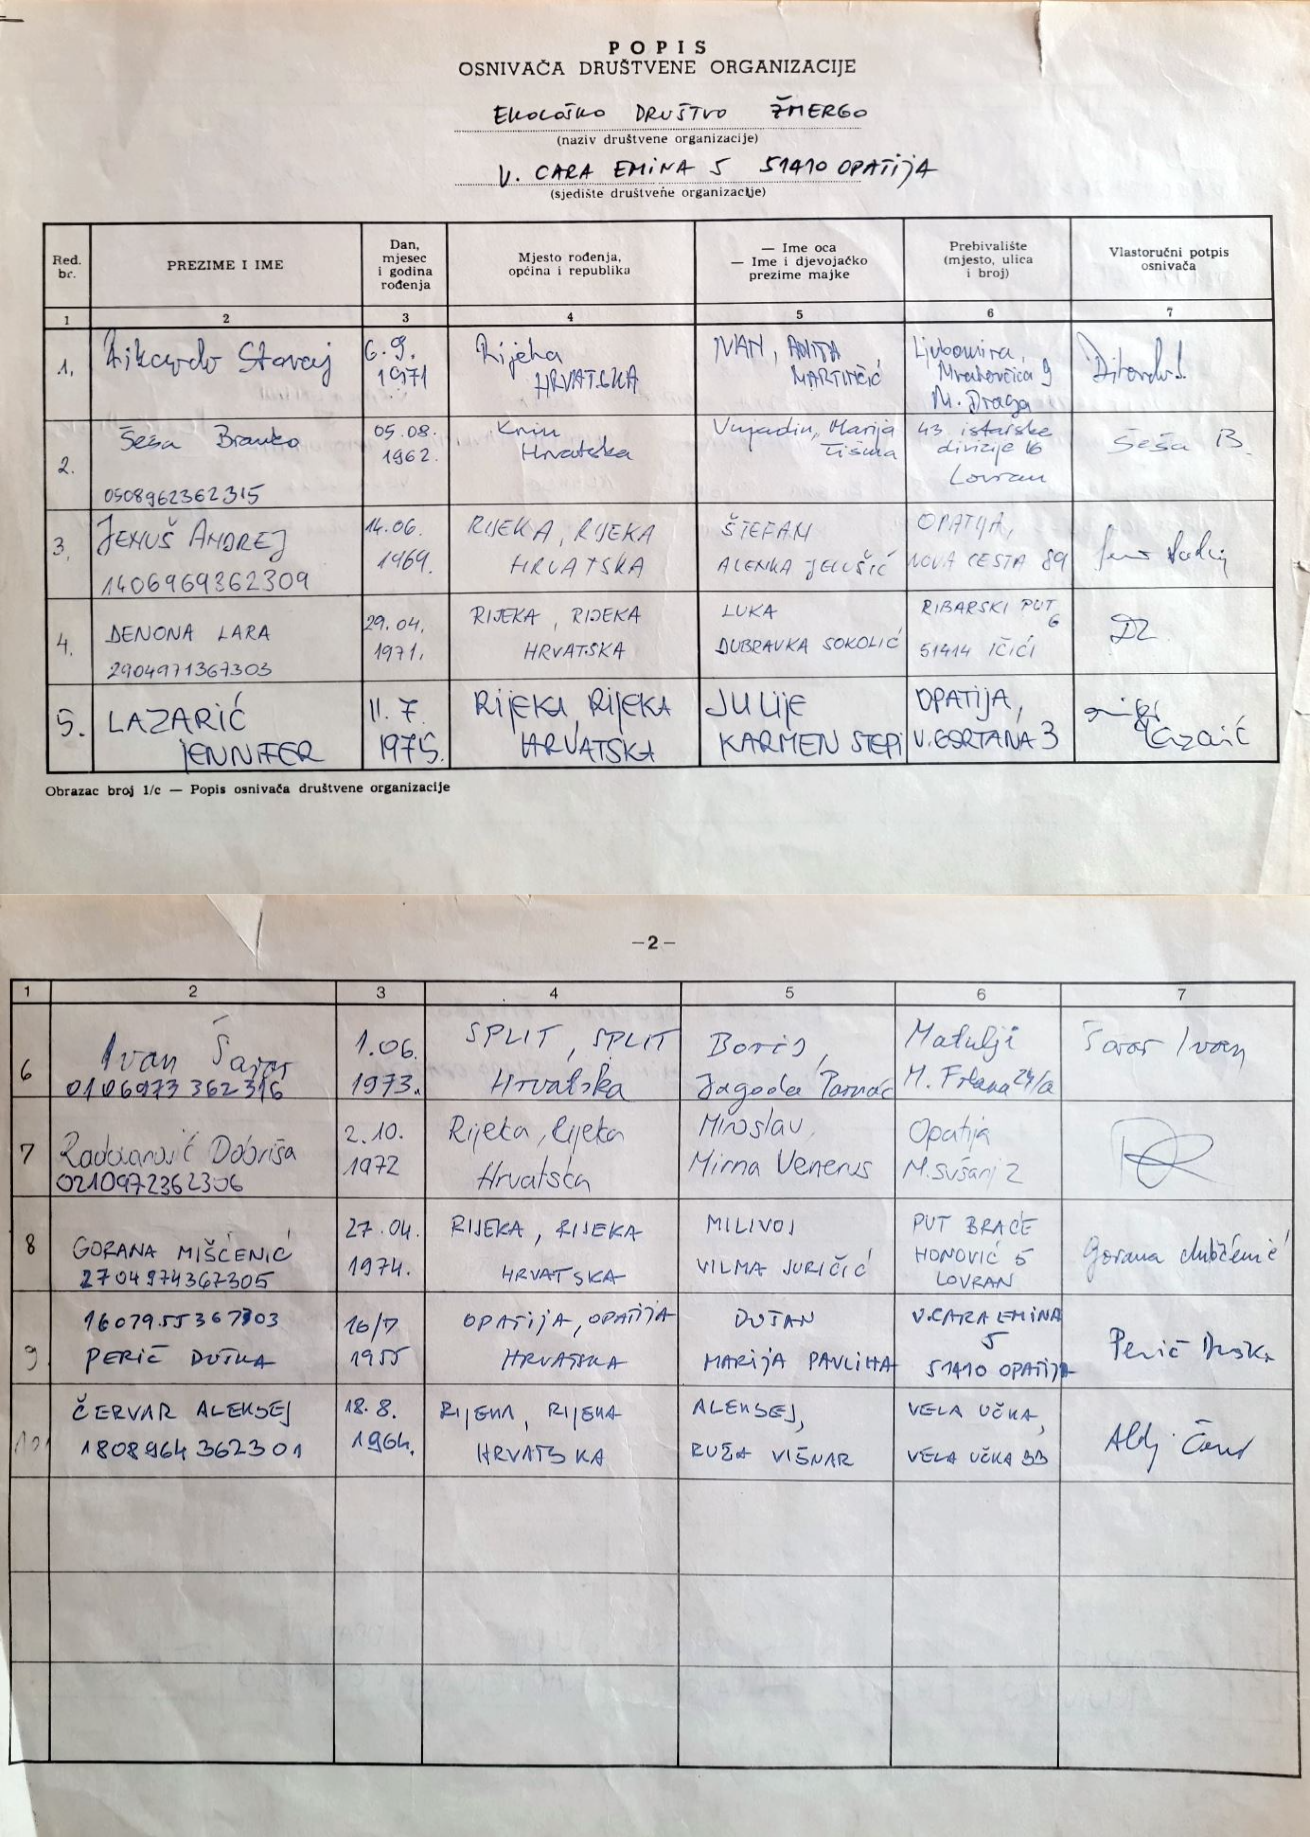 POPIS
OSNIVAČA DRUŠTVENE ORGANIZACIJE
EKOLOŠKO DRUŠTVO ŽMERGO
(naziv društvene organizacije)
V. CARA EMINA 5 51410 OPATIJA
(sjedište društvene organizacije)
Red. br. PREZIME I IME Dan, mjesec i godina rođenja Mjesto rođenja, općina i republika — Ime oca — Ime i djevojačko prezime majke Prebivalište (mjesto, ulica i broj) Vlastoručni potpis osnivača
1 2 3 4 5 6 7
1. Rikardo Staraj 6.9. Rijeka IVAN, ANITA Ljubomira
1971 HRVATSKA MARTINČIĆ Mrakovčića 9
M. Draga
2. Šeša Branko 05.08. Knin Vujadin, Marija 43 istarske Šeša B.
1962. Hrvatska Tišma divizije 16
0508962362315 Lovran
3. JENUŠ ANDREJ 14.06. RIJEKA, RIJEKA ŠTEFAN OPATIJA,
1406969362309 1969. HRVATSKA ALENKA JELUŠIĆ NOVA CESTA 89
4. DENONA LARA 29.04. RIJEKA, RIJEKA LUKA RIBARSKI PUT 6
2904971367303 1971. HRVATSKA DUBRAVKA SOKOLIĆ 51414 IČIĆI
5. LAZARIĆ 11.7. RIJEKA, RIJEKA JULIJE OPATIJA,
JENNIFER 1975. HRVATSKA KARMEN STEPI V. GORTANA 3 Lazarić
Obrazac broj 1/c — Popis osnivača društvene organizacije
—2—
1 2 3 4 5 6 7
6 Ivan Šarar 1.06. SPLIT, SPLIT Boris, Matulji Šarar Ivan
0106973362316 1973. Hrvatska Jagoda M. Frlana 24/a
7 Radovanović Dobriša 2.10. Rijeka, Rijeka Miroslav, Opatija
0210972362306 1972 Hrvatska Mirna Venerus M. Sušanj 2
8 GORANA MIŠĆENIĆ 27.04. RIJEKA, RIJEKA MILIVOJ PUT BRAĆE Gorana Mišćenić
2704974367305 1974. HRVATSKA VILMA JURIČIĆ HONOVIĆ 5
LOVRAN
1607955367303 16/7 OPATIJA, OPATIJA DUŠAN V. CARA EMINA 5
9 PERIČ DUŠKA 1955 HRVATSKA MARIJA PAVLIHA 51410 OPATIJA Perič Duška
10 ČERVAR ALEKSEJ 18.8. RIJEKA, RIJEKA ALEKSEJ, VELA UČKA,
1808964362301 1964. HRVATSKA RUŽA VIŠNAR VELA UČKA BB